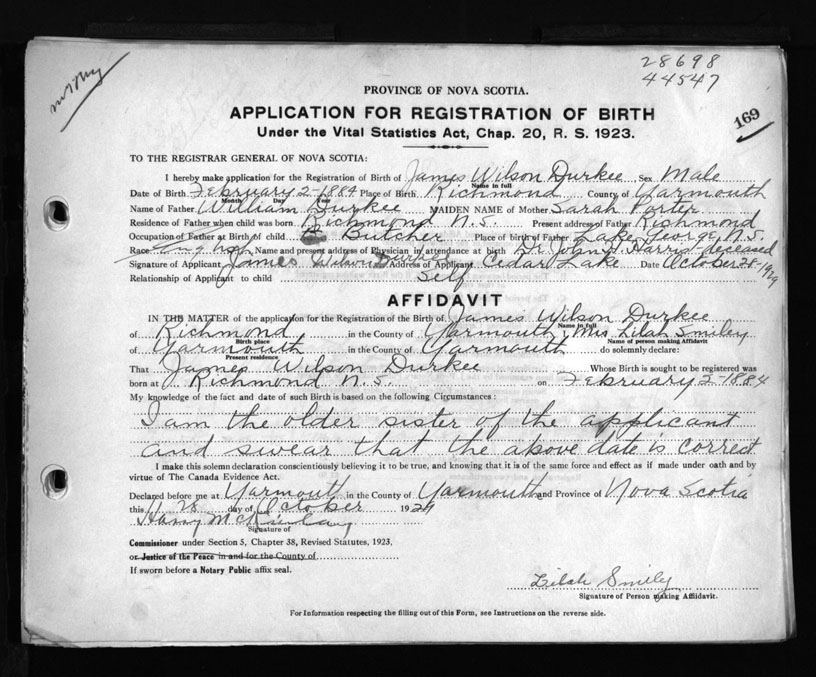 28698
44547
169
PROVINCE OF NOVA SCOTIA.
APPLICATION FOR REGISTRATION OF BIRTH
Under the Vital Statistics Act, Chap. 20, R. S. 1923.
TO THE REGISTRAR GENERAL OF NOVA SCOTIA:
I hereby make application for the Registration of Birth of James Wilson Durkee Sex Male
Name in full
Date of Birth February 2-1884 Place of Birth Richmond County of Yarmouth
Month Day Year
Name of Father William Durkee MAIDEN NAME of Mother Sarah Porter
Residence of Father when child was born Richmond N.S. Present address of Father Richmond
Occupation of Father at Birth of child Butcher Place of birth of Father Lake George N.S.
Race English Name and present address of Physician in attendance at birth Dr John Harris deceased
Signature of Applicant James Wilson Durkee Address of Applicant Cedar Lake Date October 28-1929
Relationship of Applicant to child Self
AFFIDAVIT
IN THE MATTER of the application for the Registration of the Birth of James Wilson Durkee
Name in full
of Richmond in the County of Yarmouth, Mrs Lilah Smiley
Birth place Name of person making Affidavit
of Yarmouth in the County of Yarmouth do solemnly declare:
Present residence
That James Wilson Durkee Whose Birth is sought to be registered was
born at Richmond N.S. on February 2-1884
My knowledge of the fact and date of such Birth is based on the following Circumstances:
I am the older sister of the applicant
and swear that the above date is correct
I make this solemn declaration conscientiously believing it to be true, and knowing that it is of the same force and effect as if made under oath and by
virtue of The Canada Evidence Act.
Declared before me at Yarmouth in the County of Yarmouth and Province of Nova Scotia
this 28 day of October 1929
Harry McKinlay
Signature of
Commissioner under Section 5, Chapter 38, Revised Statutes, 1923,
or Justice of the Peace in and for the County of
If sworn before a Notary Public affix seal.
Lilah Smily
Signature of Person making Affidavit.
For Information respecting the filling out of this Form, see Instructions on the reverse side.